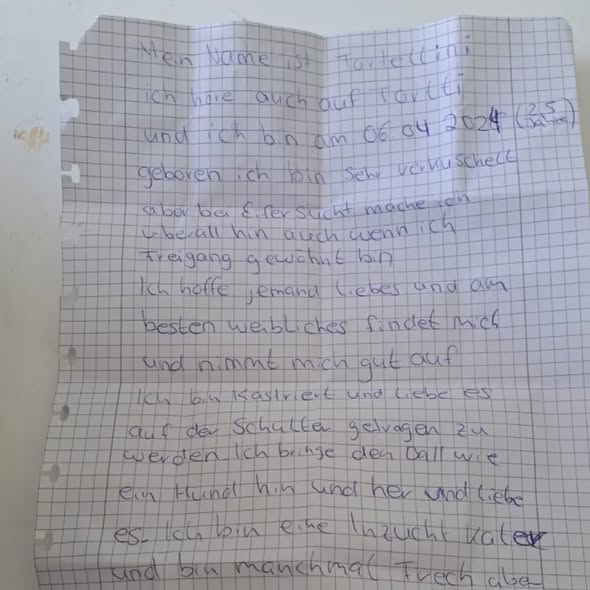 Mein Name ist Tortellini
ich höre auch auf Tortti
und ich bin am 06 04 2024 (2,5 Jahre)
geboren ich bin sehr verkuschelt
aber bei Eifersucht mache ich
überall hin auch wenn ich
Freigang gewöhnt bin
Ich hoffe jemand liebes und am
besten weibliches findet mich
und nimmt mich gut auf
Ich bin Kastriert und liebe es
auf der Schulter getragen zu
werden. Ich bringe den Ball wie
ein Hund hin und her und liebe
es. Ich bin eine Inzucht kater
und bin manchmal frech aber